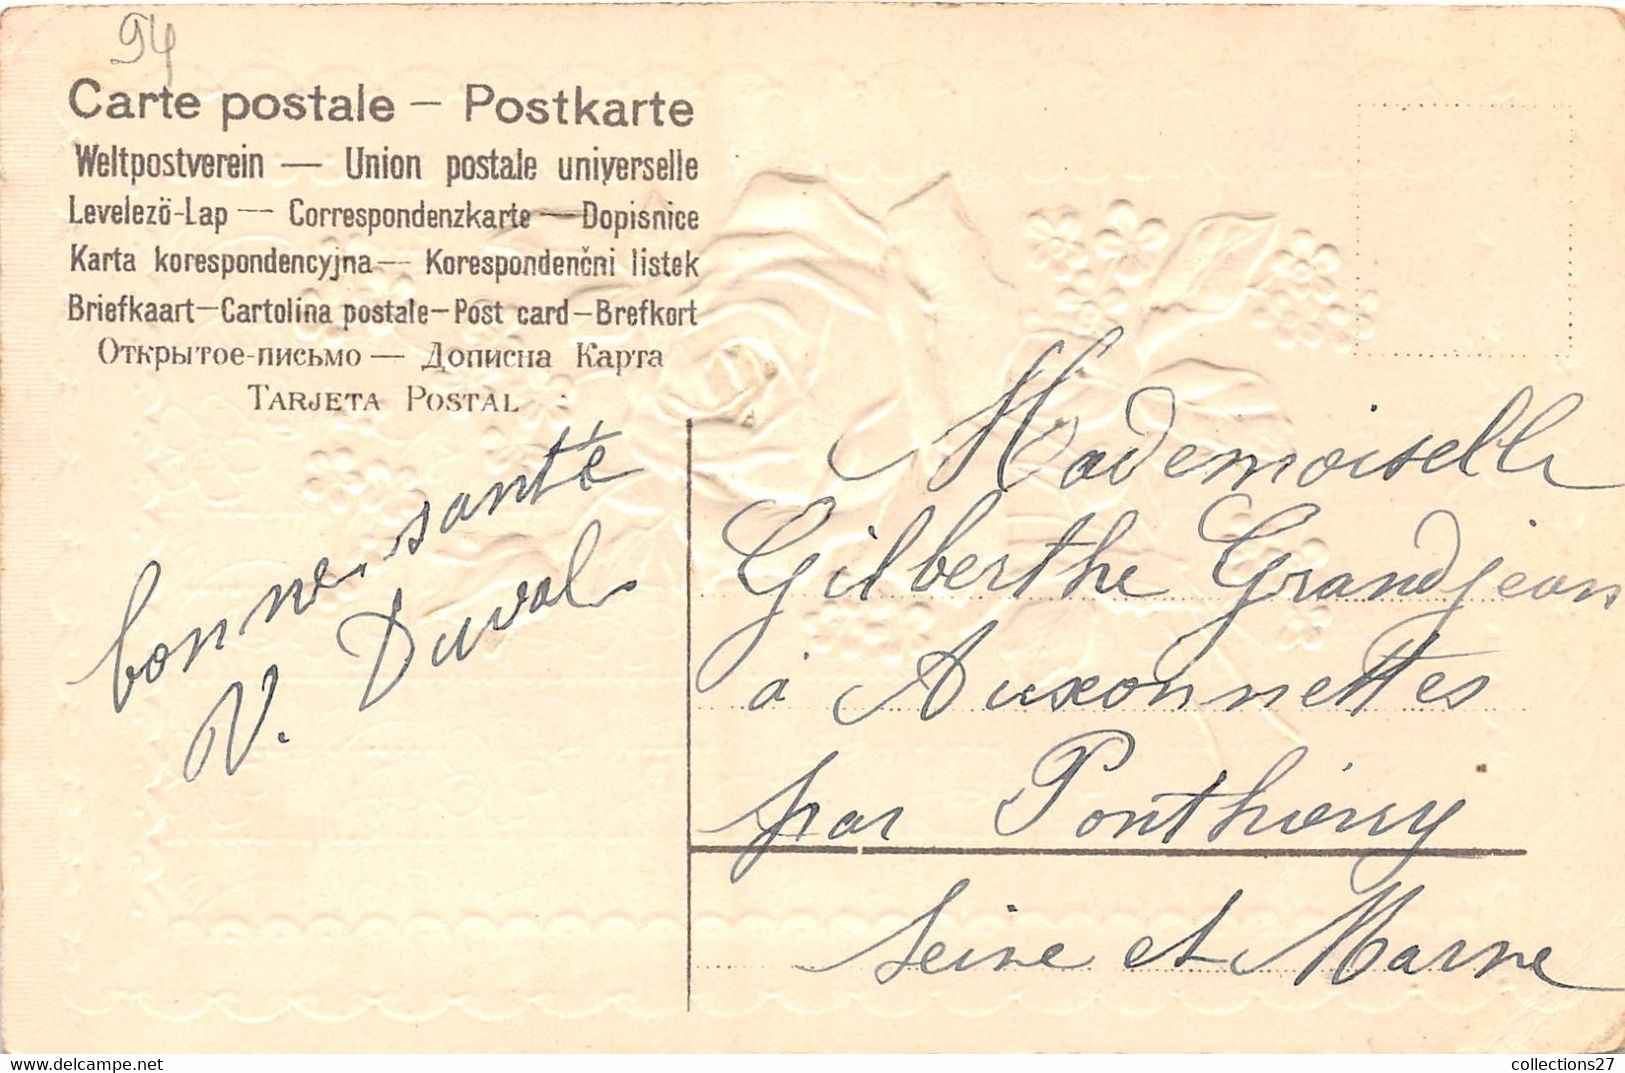 94
Carte postale – Postkarte
Weltpostverein — Union postale universelle
Levelező-Lap — Correspondenzkarte — Dopisnice
Karta korespondencyjna — Korespondenčni listek
Briefkaart – Cartolina postale – Post card – Brefkort
Открытое-письмо — Дописна Карта
Tarjeta Postal
bonne santé
V. Duval
Mademoiselle
Gilberthe Grandjean
à Auxonnettes
par Ponthierry
Seine et Marne
www.delcampe.net
collections27